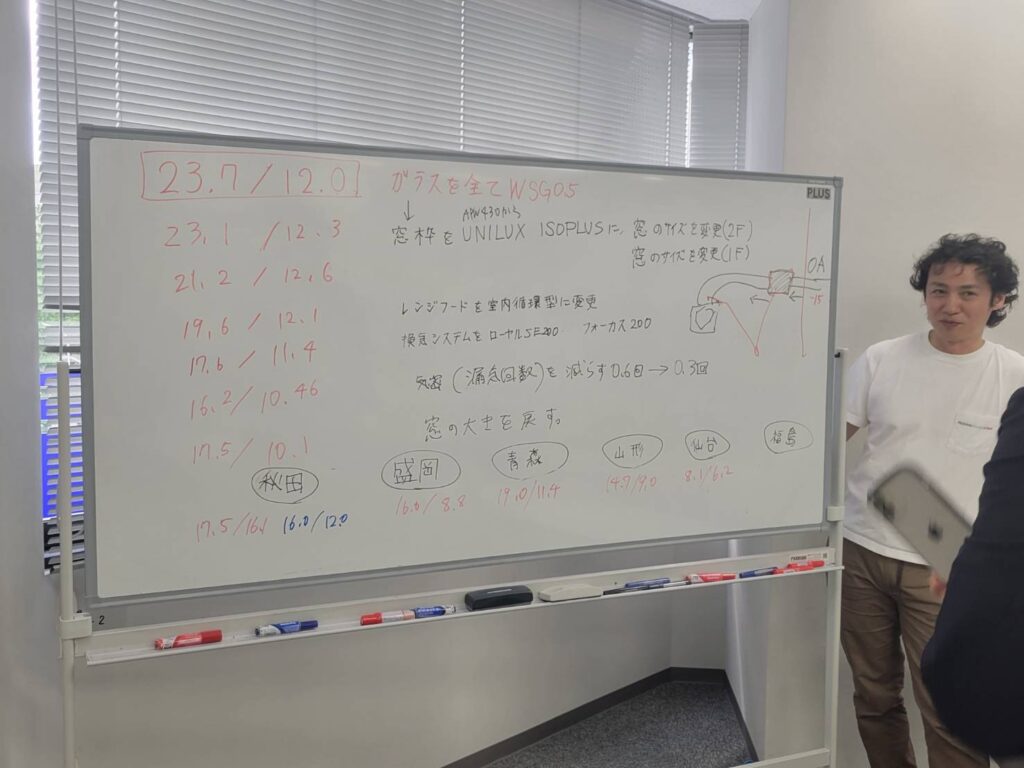 23.7 / 12.0
ガラスを全てWSG05
23.1 / 12.3
APW430から
窓枠を UNILUX ISOPLUSに, 窓のサイズを変更(2F)
窓のサイズを変更(1F)
21.2 / 12.6
OA
-15
レンジフードを室内循環型に変更
19.6 / 12.1
換気システムを ローヤルSE200 フォーカス200
17.6 / 11.4
気密(漏気回数)を減らす 0.6回→0.3回
16.2 / 10.46
窓の大きを戻す。
17.5 / 10.1
秋田 盛岡 青森 山形 仙台 福島
17.5/16.1 16.0/12.0 16.0/8.8 19.0/11.4 14.9/9.0 8.1/6.2
PLUS
2